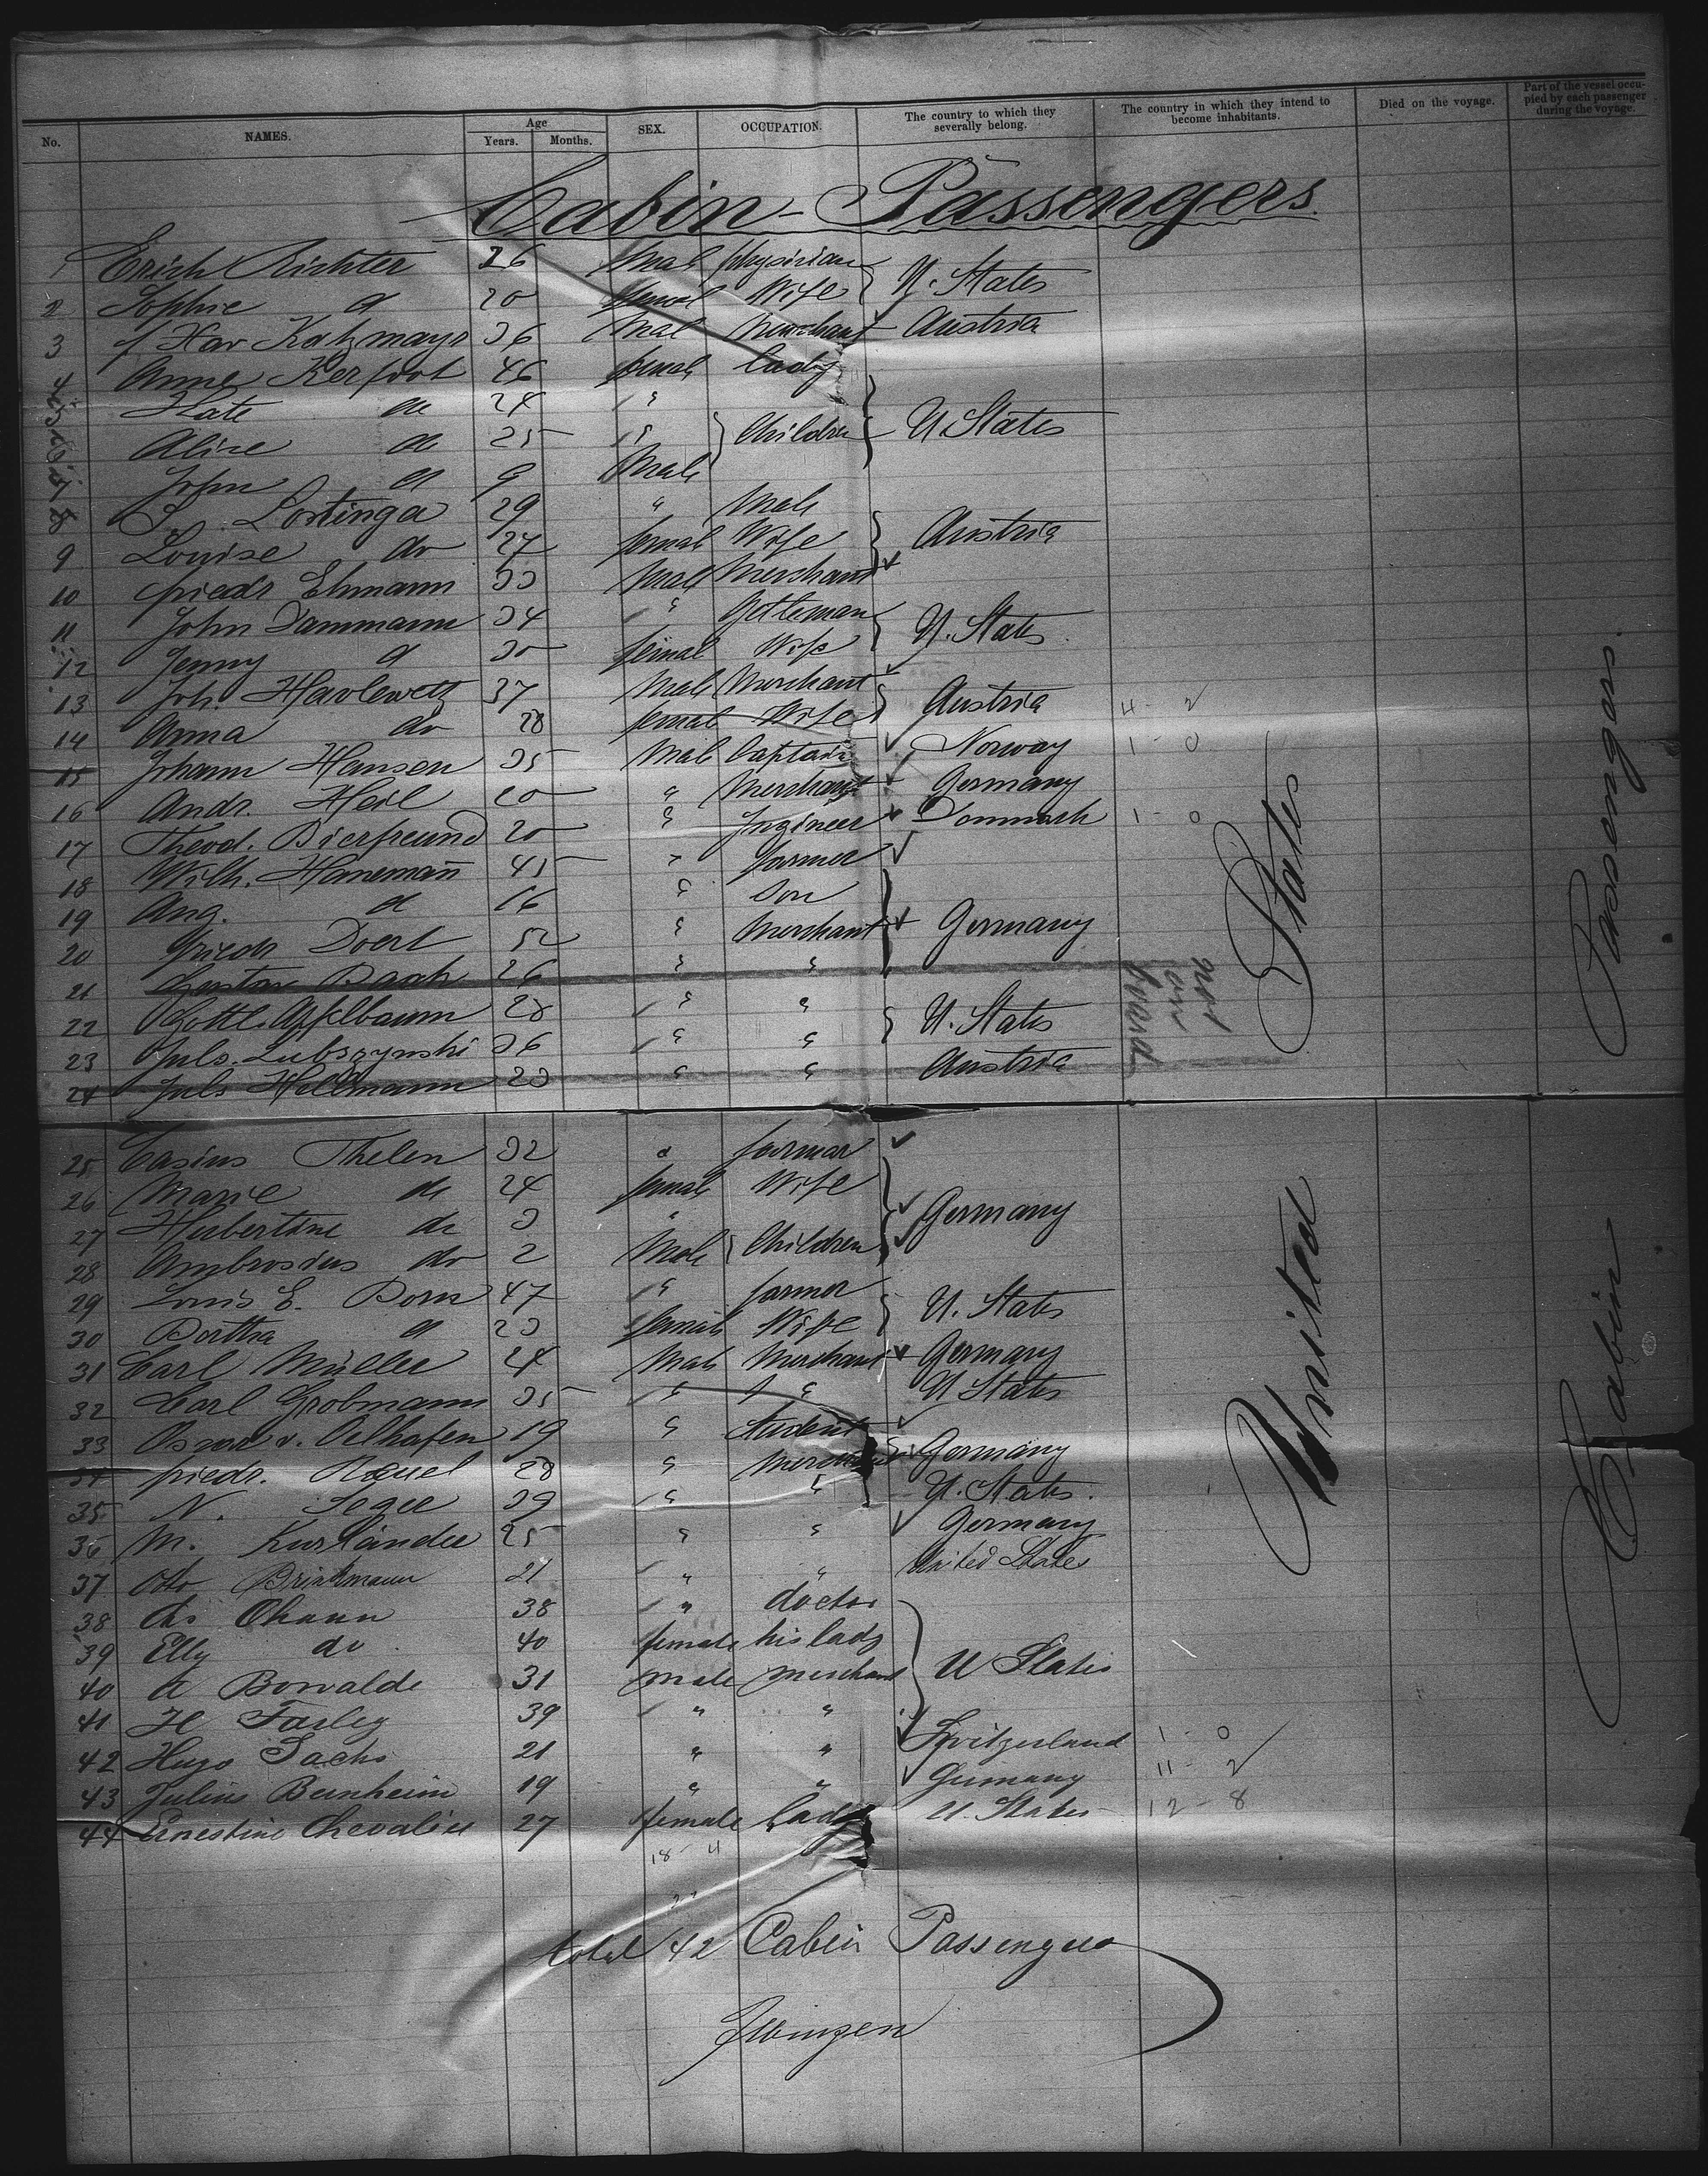 No. NAMES. Age Years. Months. SEX. OCCUPATION. The country to which they severally belong. The country in which they intend to become inhabitants. Died on the voyage. Part of the vessel occupied by each passenger during the voyage.
Cabin-Passengers
1 Erich Richter 36 Mal physician
U. States
2 Sophie d 20 femal Wife
3 Kav Katzmayr 36 Mal Merchant Austria
4 Anne Kerfoot 46 femal lady
5 Kate do 24 "
6 Alice do 25 " Children U States
7 John d 9 Male
8 S. Lortinga 29 " Male
9 Louise do 27 femal Wife Austria
10 friedr Ehmann 33 Mal Merchant
11 John Dammann 34 " Gettleman
U. States
12 Jenny d 30 femal Wife
13 Joh. Havlewetz 37 Male Merchant
Austria 4 - 2
14 Anna do 28 femal Wife
15 Johann Hansen 35 Mal Captain Norway 1 - 0
16 Andr. Heil 20 " Merchant Germany
17 Theod. Bierfreund 20 " Ingineer Donmark 1 - 0
18 Wilh. Hanemann 45 " farmer
19 Aug. d 16 " Son
20 friedr Doerl 52 " Merchant Germany
21 Gustav Bach 26 " "
not on board
22 Gottl. Apfelbaum 28 " " U. States
23 Juls. Lubszynski 36 " "
24 Juls Hellmann 23 " " Austria
25 Casius Thelen 32 " farmar
26 Marie do 24 female Wife
27 Hubertine do 3 " Germany
28 Ambrosius do 2 Male Children
29 Louis E. Dorn 47 " farmer
U. States
30 Bertha d 23 female Wife
31 Carl Müller 24 Male Merchant Germany
32 Carl Grobmann 35 " " U States
33 Oscar v. Oelhafen 19 " Student
34 friedr. 28 " Merchant Germany
35 N. Seger 39 " " U. States.
36 M. Kurländer 25 " " Germany
37 Otto Brinkmann 21 " " United States
38 Chs Ohann 38 " doctor
39 Elly do 40 female his lady
40 A Bowalde 31 male merchant U States
41 H Farley 39 " "
42 Hugo Sachs 21 " " Switzerland 1 - 0
43 Julius Bernheim 19 " " Germany 11 - 2
44 Ernestine Chevalier 27 female Lady U. States 12 - 8
18 - 4
22
total 42 Cabin Passengers
United States
Cabin Passengers.